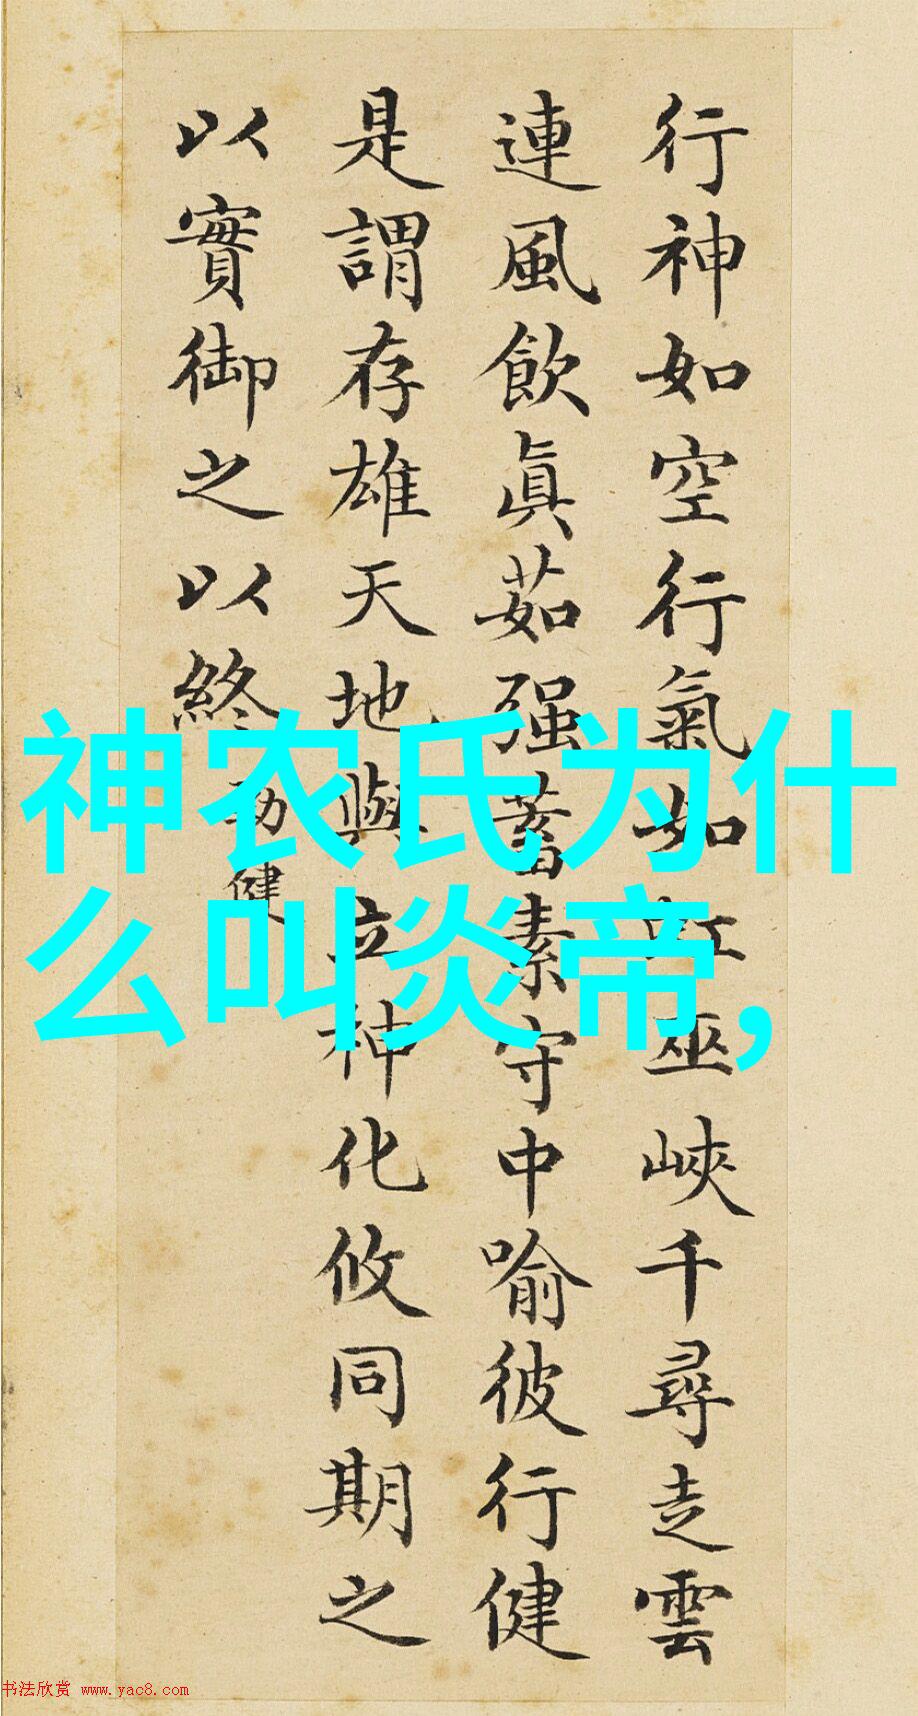 行神如空行氣如虹巫峽千尋走雲
連風飲眞茹强蓄素守中喻彼行健
是謂存雄天地與立神化攸同期之
以實御之以終
劲健
神农氏为什
么叫炎帝,
书法欣赏 www.yac8.com